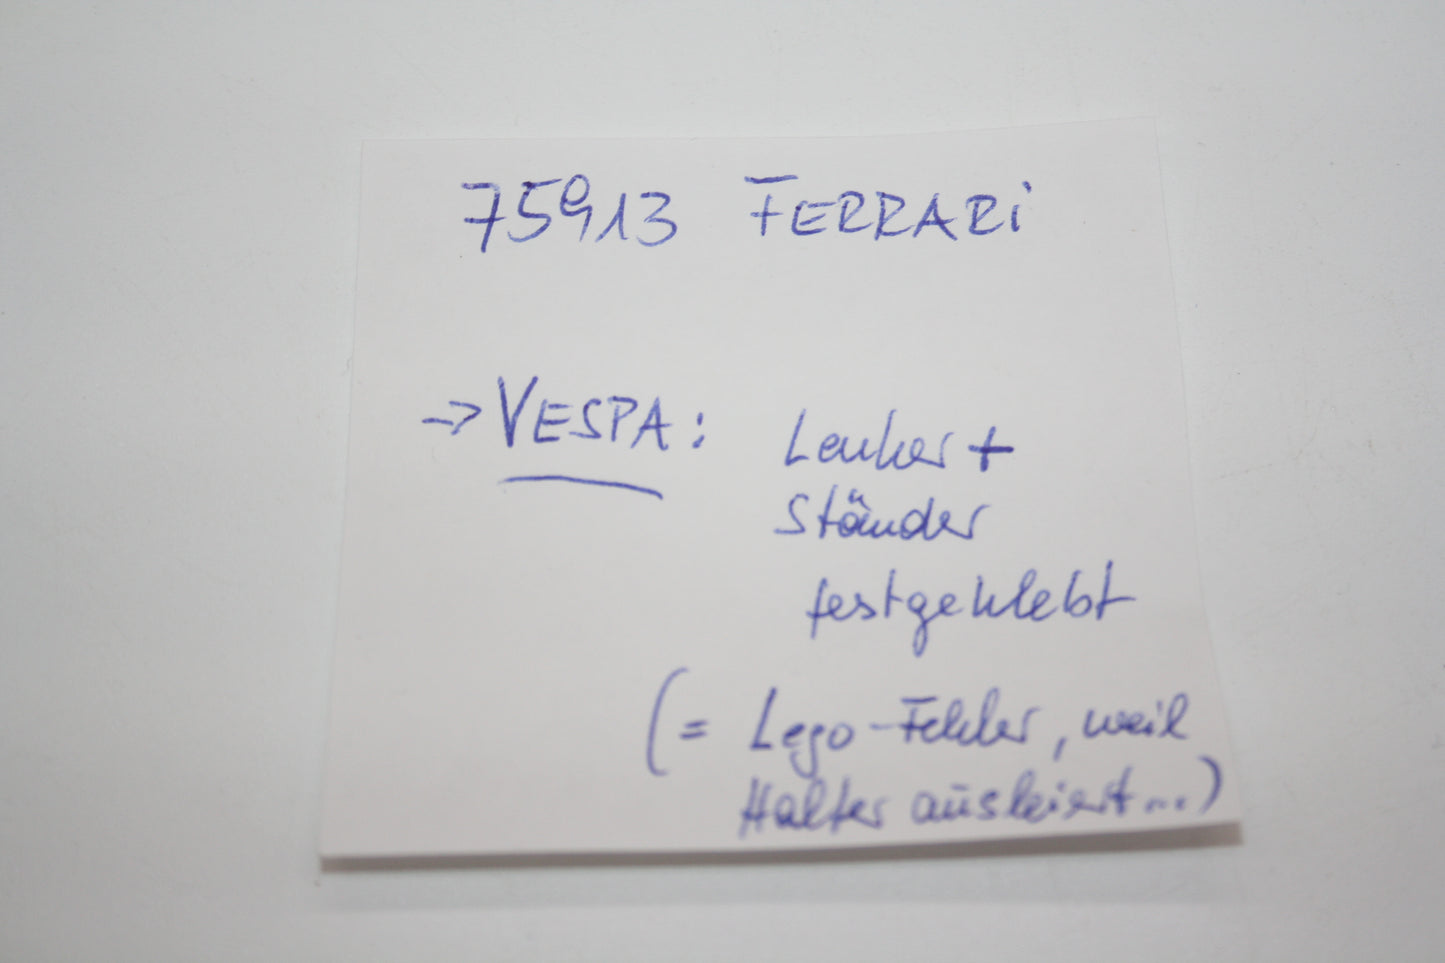 75913 FERRARi
→ VESPA: Lenker +
Ständer
festgeklebt
(= Lego-Fehler, weil
Halter ausleiert...)